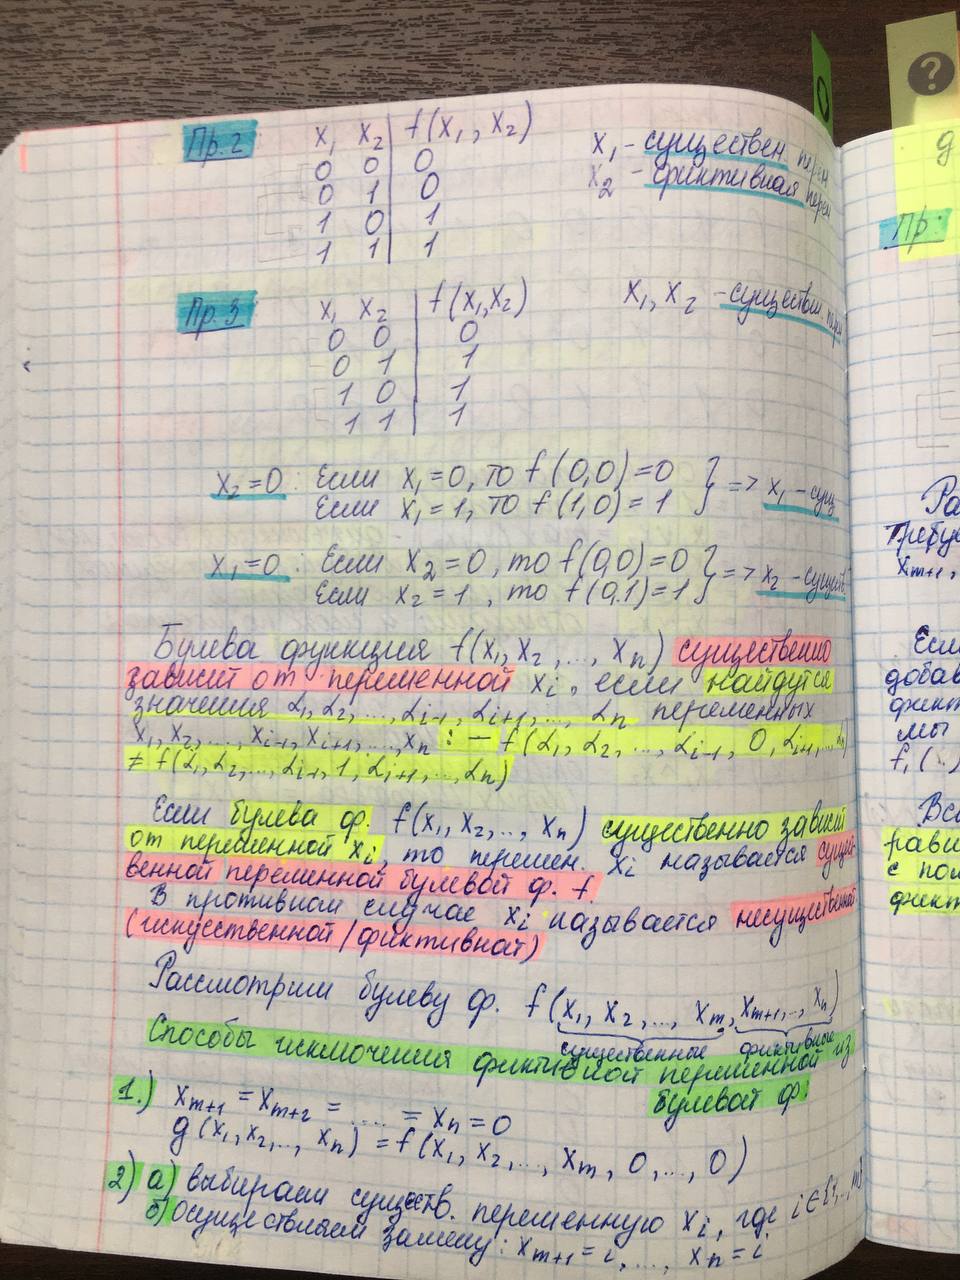 Пр. 2 x₁ x₂ f(x₁, x₂)
0 0 0
0 1 0
1 0 1
1 1 1
x₁ - существен. перем
x₂ - фиктивная перем
Пр. 3 x₁ x₂ f(x₁, x₂)
0 0 0
0 1 1
1 0 1
1 1 1
x₁, x₂ - существен перем
x₂=0: Если x₁=0, то f(0,0)=0
Если x₁=1, то f(1,0)=1 } => x₁ - сущ
x₁=0: Если x₂=0, то f(0,0)=0
Если x₂=1, то f(0,1)=1 } => x₂ - сущест
Булева функция f(x₁, x₂, ..., xₙ) существенно
зависит от переменной xᵢ, если найдутся
значения α₁, α₂, ..., αᵢ₋₁, αᵢ₊₁, ..., αₙ переменных
x₁, x₂, ..., xᵢ₋₁, xᵢ₊₁, ..., xₙ : — f(α₁, α₂, ..., αᵢ₋₁, 0, αᵢ₊₁, ..., αₙ)
≠ f(α₁, α₂, ..., αᵢ₋₁, 1, αᵢ₊₁, ..., αₙ)
Если булева ф. f(x₁, x₂, ..., xₙ) существенно зависит
от переменной xᵢ, то перемен. xᵢ называется сущест
венной переменной булевой ф. f.
В противном случае xᵢ называется несущественной
(искусственной/фиктивной)
Рассмотрим булеву ф. f(x₁, x₂, ..., xₘ, xₘ₊₁, ..., xₙ)
существенные фиктивные
Способы исключения фиктивной переменной из
булевой ф:
1.) xₘ₊₁ = xₘ₊₂ = .... = xₙ = 0
g(x₁, x₂, ..., xₙ) = f(x₁, x₂, ..., xₘ, 0, ..., 0)
2) а) выбираем существ. переменную xᵢ, где i∈{1,..,m}
б) осуществляем замену: xₘ₊₁ = i, ..., xₙ = i
?
Пр:
Ра
Требуе
xₘ₊₁,
Если
добав
фикт
мы
f₁(
Всс
равн
с пом
фикт